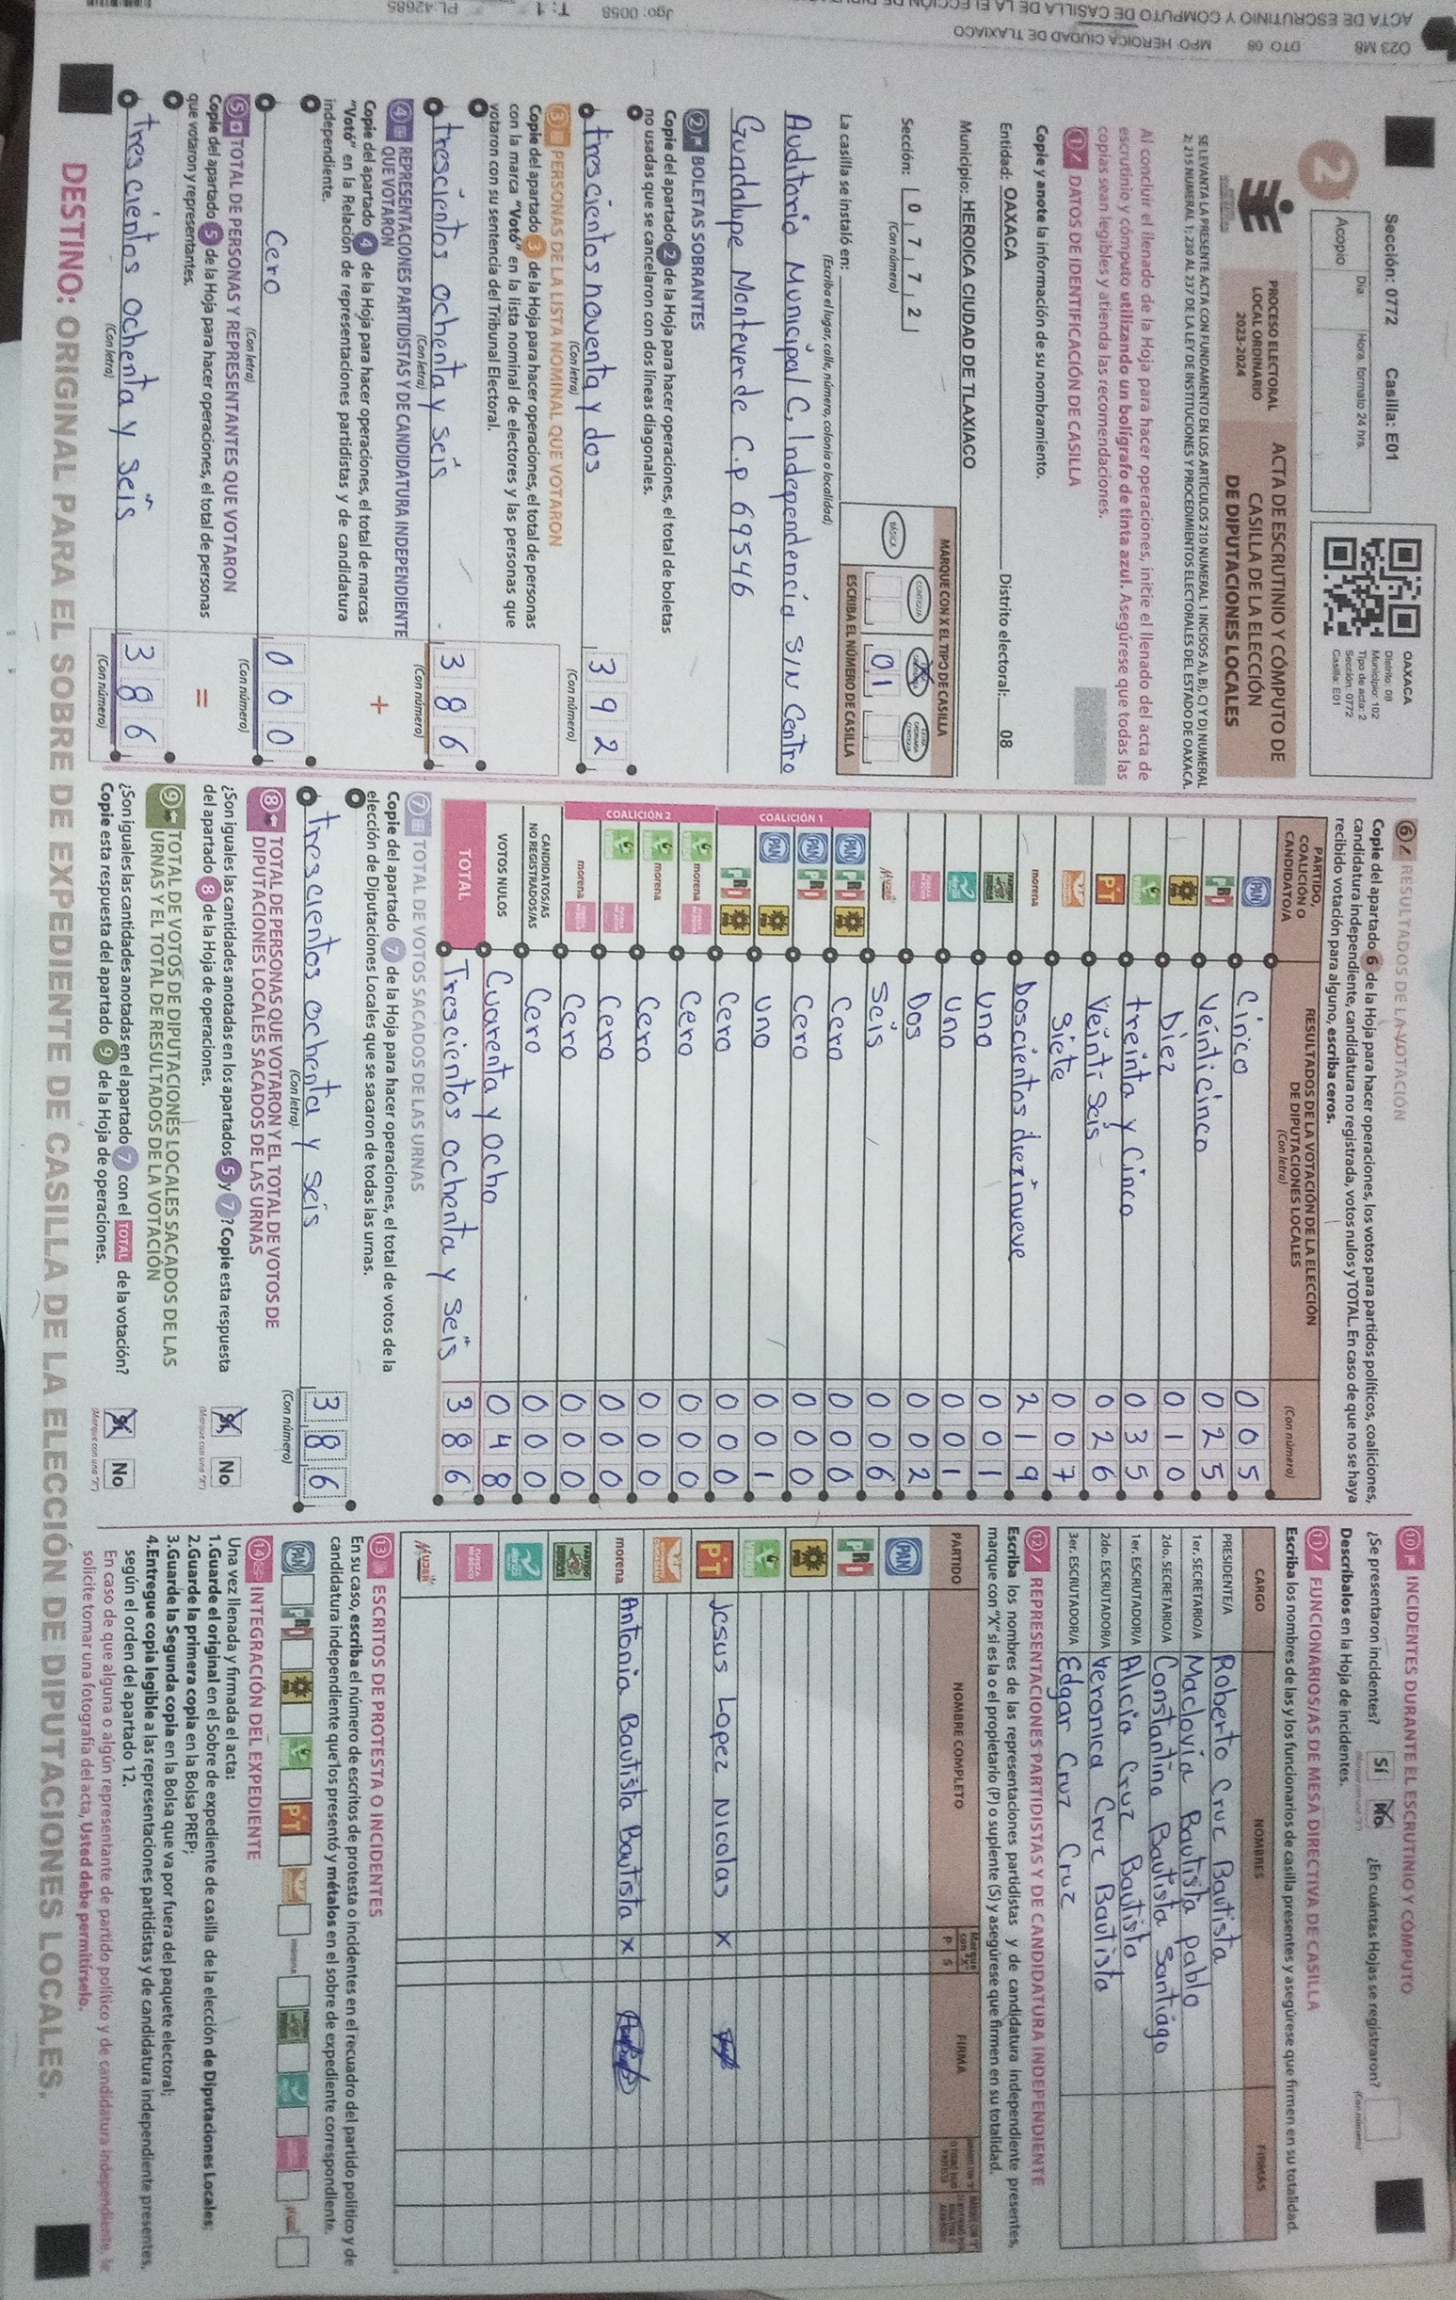 O23 M8 DTO 08 MPO HEROICA CIUDAD DE TLAXIACO Jgo: 0058 T: 1 PL:42685
Sección: 0772 Casilla: E01
Día Hora, formato 24 hrs.
Acopio
OAXACA
Distrito: 08
Municipio: 102
Tipo de acta: 2
Sección: 0772
Casilla: E01
2
PROCESO ELECTORAL
LOCAL ORDINARIO
2023-2024
ACTA DE ESCRUTINIO Y CÓMPUTO DE
CASILLA DE LA ELECCIÓN
DE DIPUTACIONES LOCALES
SE LEVANTA LA PRESENTE ACTA CON FUNDAMENTO EN LOS ARTÍCULOS 210 NUMERAL 1 INCISOS A), B), C) Y D) NUMERAL
2; 215 NUMERAL 1; 230 AL 237 DE LA LEY DE INSTITUCIONES Y PROCEDIMIENTOS ELECTORALES DEL ESTADO DE OAXACA.
Al concluir el llenado de la Hoja para hacer operaciones, inicie el llenado del acta de
escrutinio y cómputo utilizando un bolígrafo de tinta azul. Asegúrese que todas las
copias sean legibles y atienda las recomendaciones.
1 DATOS DE IDENTIFICACIÓN DE CASILLA
Copie y anote la información de su nombramiento.
Entidad: OAXACA Distrito electoral: 08
Municipio: HEROICA CIUDAD DE TLAXIACO
Sección: 0 7 7 2
(Con número)
MARQUE CON X EL TIPO DE CASILLA
BÁSICA CONTIGUA
01
ESCRIBA EL NÚMERO DE CASILLA
La casilla se instaló en:
(Escriba el lugar, calle, número, colonia o localidad)
Auditorio Municipal C. Independencia S/N Centro
Guadalupe Monteverde C.P 69546
2 BOLETAS SOBRANTES
Copie del apartado 2 de la Hoja para hacer operaciones, el total de boletas
no usadas que se cancelaron con dos líneas diagonales.
trescientos noventa y dos 3 9 2
(Con letra) (Con número)
3 PERSONAS DE LA LISTA NOMINAL QUE VOTARON
Copie del apartado 3 de la Hoja para hacer operaciones, el total de personas
con la marca "Votó" en la lista nominal de electores y las personas que
votaron con su sentencia del Tribunal Electoral.
trescientos ochenta y seis 3 8 6
(Con letra) (Con número)
4 REPRESENTACIONES PARTIDISTAS Y DE CANDIDATURA INDEPENDIENTE
QUE VOTARON
+
Copie del apartado 4 de la Hoja para hacer operaciones, el total de marcas
"Votó" en la Relación de representaciones partidistas y de candidatura
independiente.
Cero 0 0 0
(Con letra) (Con número)
5 TOTAL DE PERSONAS Y REPRESENTANTES QUE VOTARON
=
Copie del apartado 5 de la Hoja para hacer operaciones, el total de personas
que votaron y representantes.
trescientos ochenta y seis 3 8 6
(Con letra) (Con número)
6 RESULTADOS DE LA VOTACIÓN
Copie del apartado 6 de la Hoja para hacer operaciones, los votos para partidos políticos, coaliciones,
candidatura independiente, candidatura no registrada, votos nulos y TOTAL. En caso de que no se haya
recibido votación para alguno, escriba ceros.
PARTIDO, COALICIÓN O CANDIDATO/A
RESULTADOS DE LA VOTACIÓN DE LA ELECCIÓN DE DIPUTACIONES LOCALES
(Con letra) (Con número)
PAN Cinco 0 0 5
PRI Veinticinco 0 2 5
PRD Diez 0 1 0
VERDE treinta y Cinco 0 3 5
PT Veinti seis 0 2 6
siete 0 0 7
morena Doscientos diezinueve 2 1 9
uno 0 0 1
uno 0 0 1
Dos 0 0 2
MUJER seis 0 0 6
COALICIÓN 1
PAN PRI PRD Cero 0 0 0
PAN PRI Cero 0 0 0
PAN PRD uno 0 0 1
PRI PRD Cero 0 0 0
COALICIÓN 2
VERDE morena Cero 0 0 0
VERDE morena Cero 0 0 0
VERDE Cero 0 0 0
morena Cero 0 0 0
CANDIDATOS/AS NO REGISTRADOS/AS Cero 0 0 0
VOTOS NULOS Cuarenta y ocho 0 4 8
TOTAL Trescientos ochenta y seis 3 8 6
7 TOTAL DE VOTOS SACADOS DE LAS URNAS
Copie del apartado 7 de la Hoja para hacer operaciones, el total de votos de la
elección de Diputaciones Locales que se sacaron de todas las urnas.
trescientos ochenta y seis 3 8 6
(Con letra) (Con número)
8 TOTAL DE PERSONAS QUE VOTARON Y EL TOTAL DE VOTOS DE
DIPUTACIONES LOCALES SACADOS DE LAS URNAS
¿Son iguales las cantidades anotadas en los apartados 5 y 7? Copie esta respuesta
del apartado 8 de la Hoja de operaciones.
Sí No
(Marque con una "X")
9 TOTAL DE VOTOS DE DIPUTACIONES LOCALES SACADOS DE LAS
URNAS Y EL TOTAL DE RESULTADOS DE LA VOTACIÓN
¿Son iguales las cantidades anotadas en el apartado 7 con el TOTAL de la votación?
Copie esta respuesta del apartado 9 de la Hoja de operaciones.
Sí No
(Marque con una "X")
10 INCIDENTES DURANTE EL ESCRUTINIO Y CÓMPUTO
¿Se presentaron incidentes? Sí No ¿En cuántas Hojas se registraron?
(Con número)
Descríbalos en la Hoja de incidentes.
11 FUNCIONARIOS/AS DE MESA DIRECTIVA DE CASILLA
Escriba los nombres de las y los funcionarios de casilla presentes y asegúrese que firmen en su totalidad.
CARGO NOMBRES FIRMAS
PRESIDENTE/A Roberto Cruz Bautista
1er. SECRETARIO/A Maclovia Bautista Pablo
2do. SECRETARIO/A Constantino Bautista Santiago
1er. ESCRUTADOR/A Alicia Cruz Bautista
2do. ESCRUTADOR/A Veronica Cruz Bautista
3er. ESCRUTADOR/A Edgar Cruz Cruz
12 REPRESENTACIONES PARTIDISTAS Y DE CANDIDATURA INDEPENDIENTE
Escriba los nombres de las representaciones partidistas y de candidatura independiente presentes,
marque con "X" si es la o el propietario (P) o suplente (S) y asegúrese que firmen en su totalidad.
PARTIDO NOMBRE COMPLETO Marque con "X" P S FIRMA
PAN
PRI
PRD
VERDE
PT Jesus Lopez Nicolas X
morena Antonia Bautista Bautista X
MUJER
13 ESCRITOS DE PROTESTA O INCIDENTES
En su caso, escriba el número de escritos de protesta o incidentes en el recuadro del partido político y de
candidatura independiente que los presentó y métalos en el sobre de expediente correspondiente.
PAN PRI PRD VERDE PT morena
14 INTEGRACIÓN DEL EXPEDIENTE
Una vez llenada y firmada el acta:
1.Guarde el original en el Sobre de expediente de casilla de la elección de Diputaciones Locales;
2.Guarde la primera copia en la Bolsa PREP;
3.Guarde la Segunda copia en la Bolsa que va por fuera del paquete electoral;
4.Entregue copia legible a las representaciones partidistas y de candidatura independiente presentes,
según el orden del apartado 12.
En caso de que alguna o algún representante de partido político y de candidatura independiente, le
solicite tomar una fotografía del acta, Usted debe permitírselo.
DESTINO: ORIGINAL PARA EL SOBRE DE EXPEDIENTE DE CASILLA DE LA ELECCIÓN DE DIPUTACIONES LOCALES.